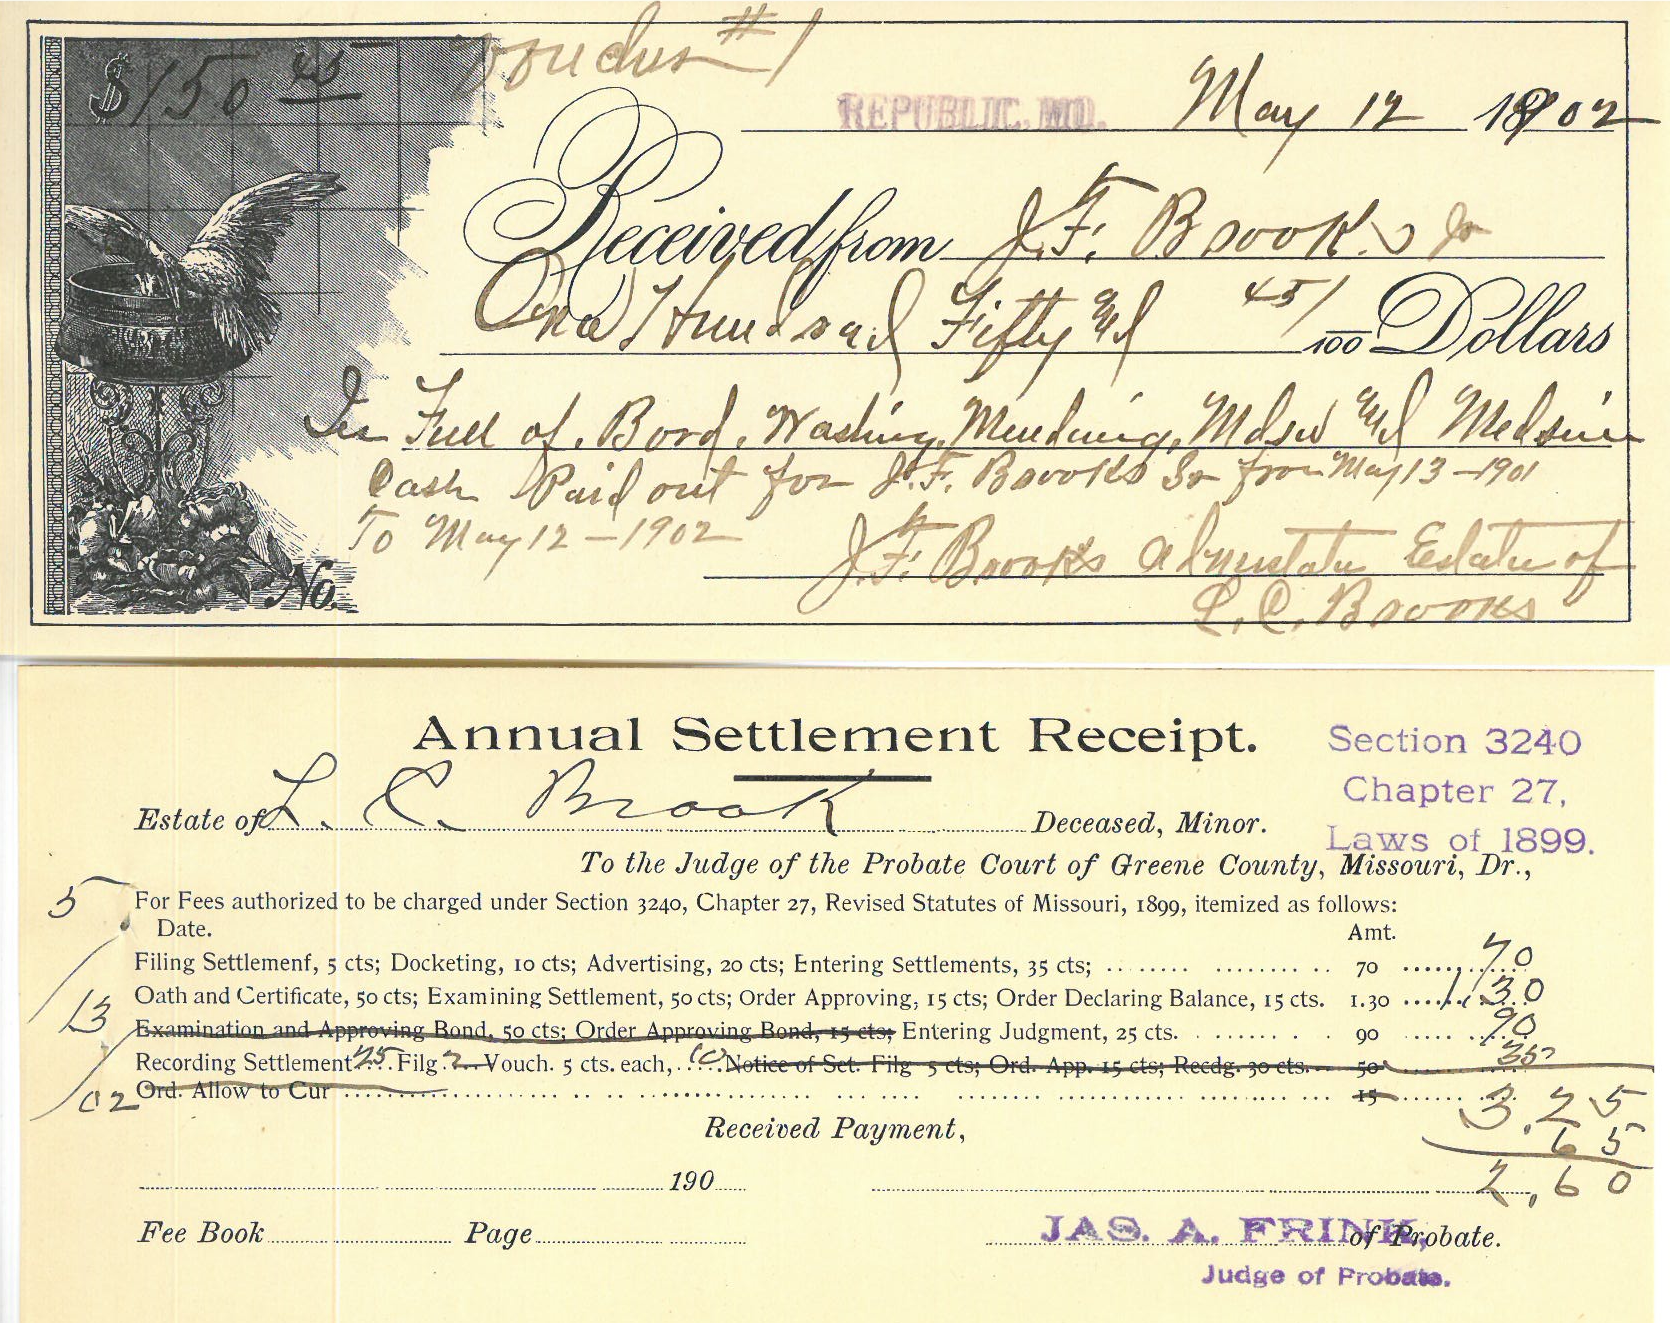 $150 45
Voucher #1
REPUBLIC, MO. May 12 1902
Received from J. F. Brooks Jr
One Hundred Fifty and 45/100 Dollars
In Full of Bord, Washing, Mending, Mdse and Medsine
Cash Paid out for J. F. Brooks Sr from May 13 - 1901
To May 12 - 1902
J. F. Brooks Estate of
No. L. C. Brooks
Annual Settlement Receipt.
Section 3240
Chapter 27,
Laws of 1899.
Estate of L. C. Brook Deceased, Minor.
To the Judge of the Probate Court of Greene County, Missouri, Dr.,
5/13/02
For Fees authorized to be charged under Section 3240, Chapter 27, Revised Statutes of Missouri, 1899, itemized as follows:
Date. Amt.
Filing Settlement, 5 cts; Docketing, 10 cts; Advertising, 20 cts; Entering Settlements, 35 cts; 70 70
Oath and Certificate, 50 cts; Examining Settlement, 50 cts; Order Approving, 15 cts; Order Declaring Balance, 15 cts. 1.30 1.30
Examination and Approving Bond, 50 cts; Order Approving Bond, 15 cts; Entering Judgment, 25 cts. 90 90
Recording Settlement 25 Filg 2 Vouch. 5 cts. each, 10 Notice of Set. Filg 5 cts; Ord. App. 15 cts; Recdg. 30 cts. 50 35
Ord. Allow to Cur 15 3.25
65
Received Payment,
190 2.60
Fee Book Page JAS. A. FRINK, of Probate.
Judge of Probate.